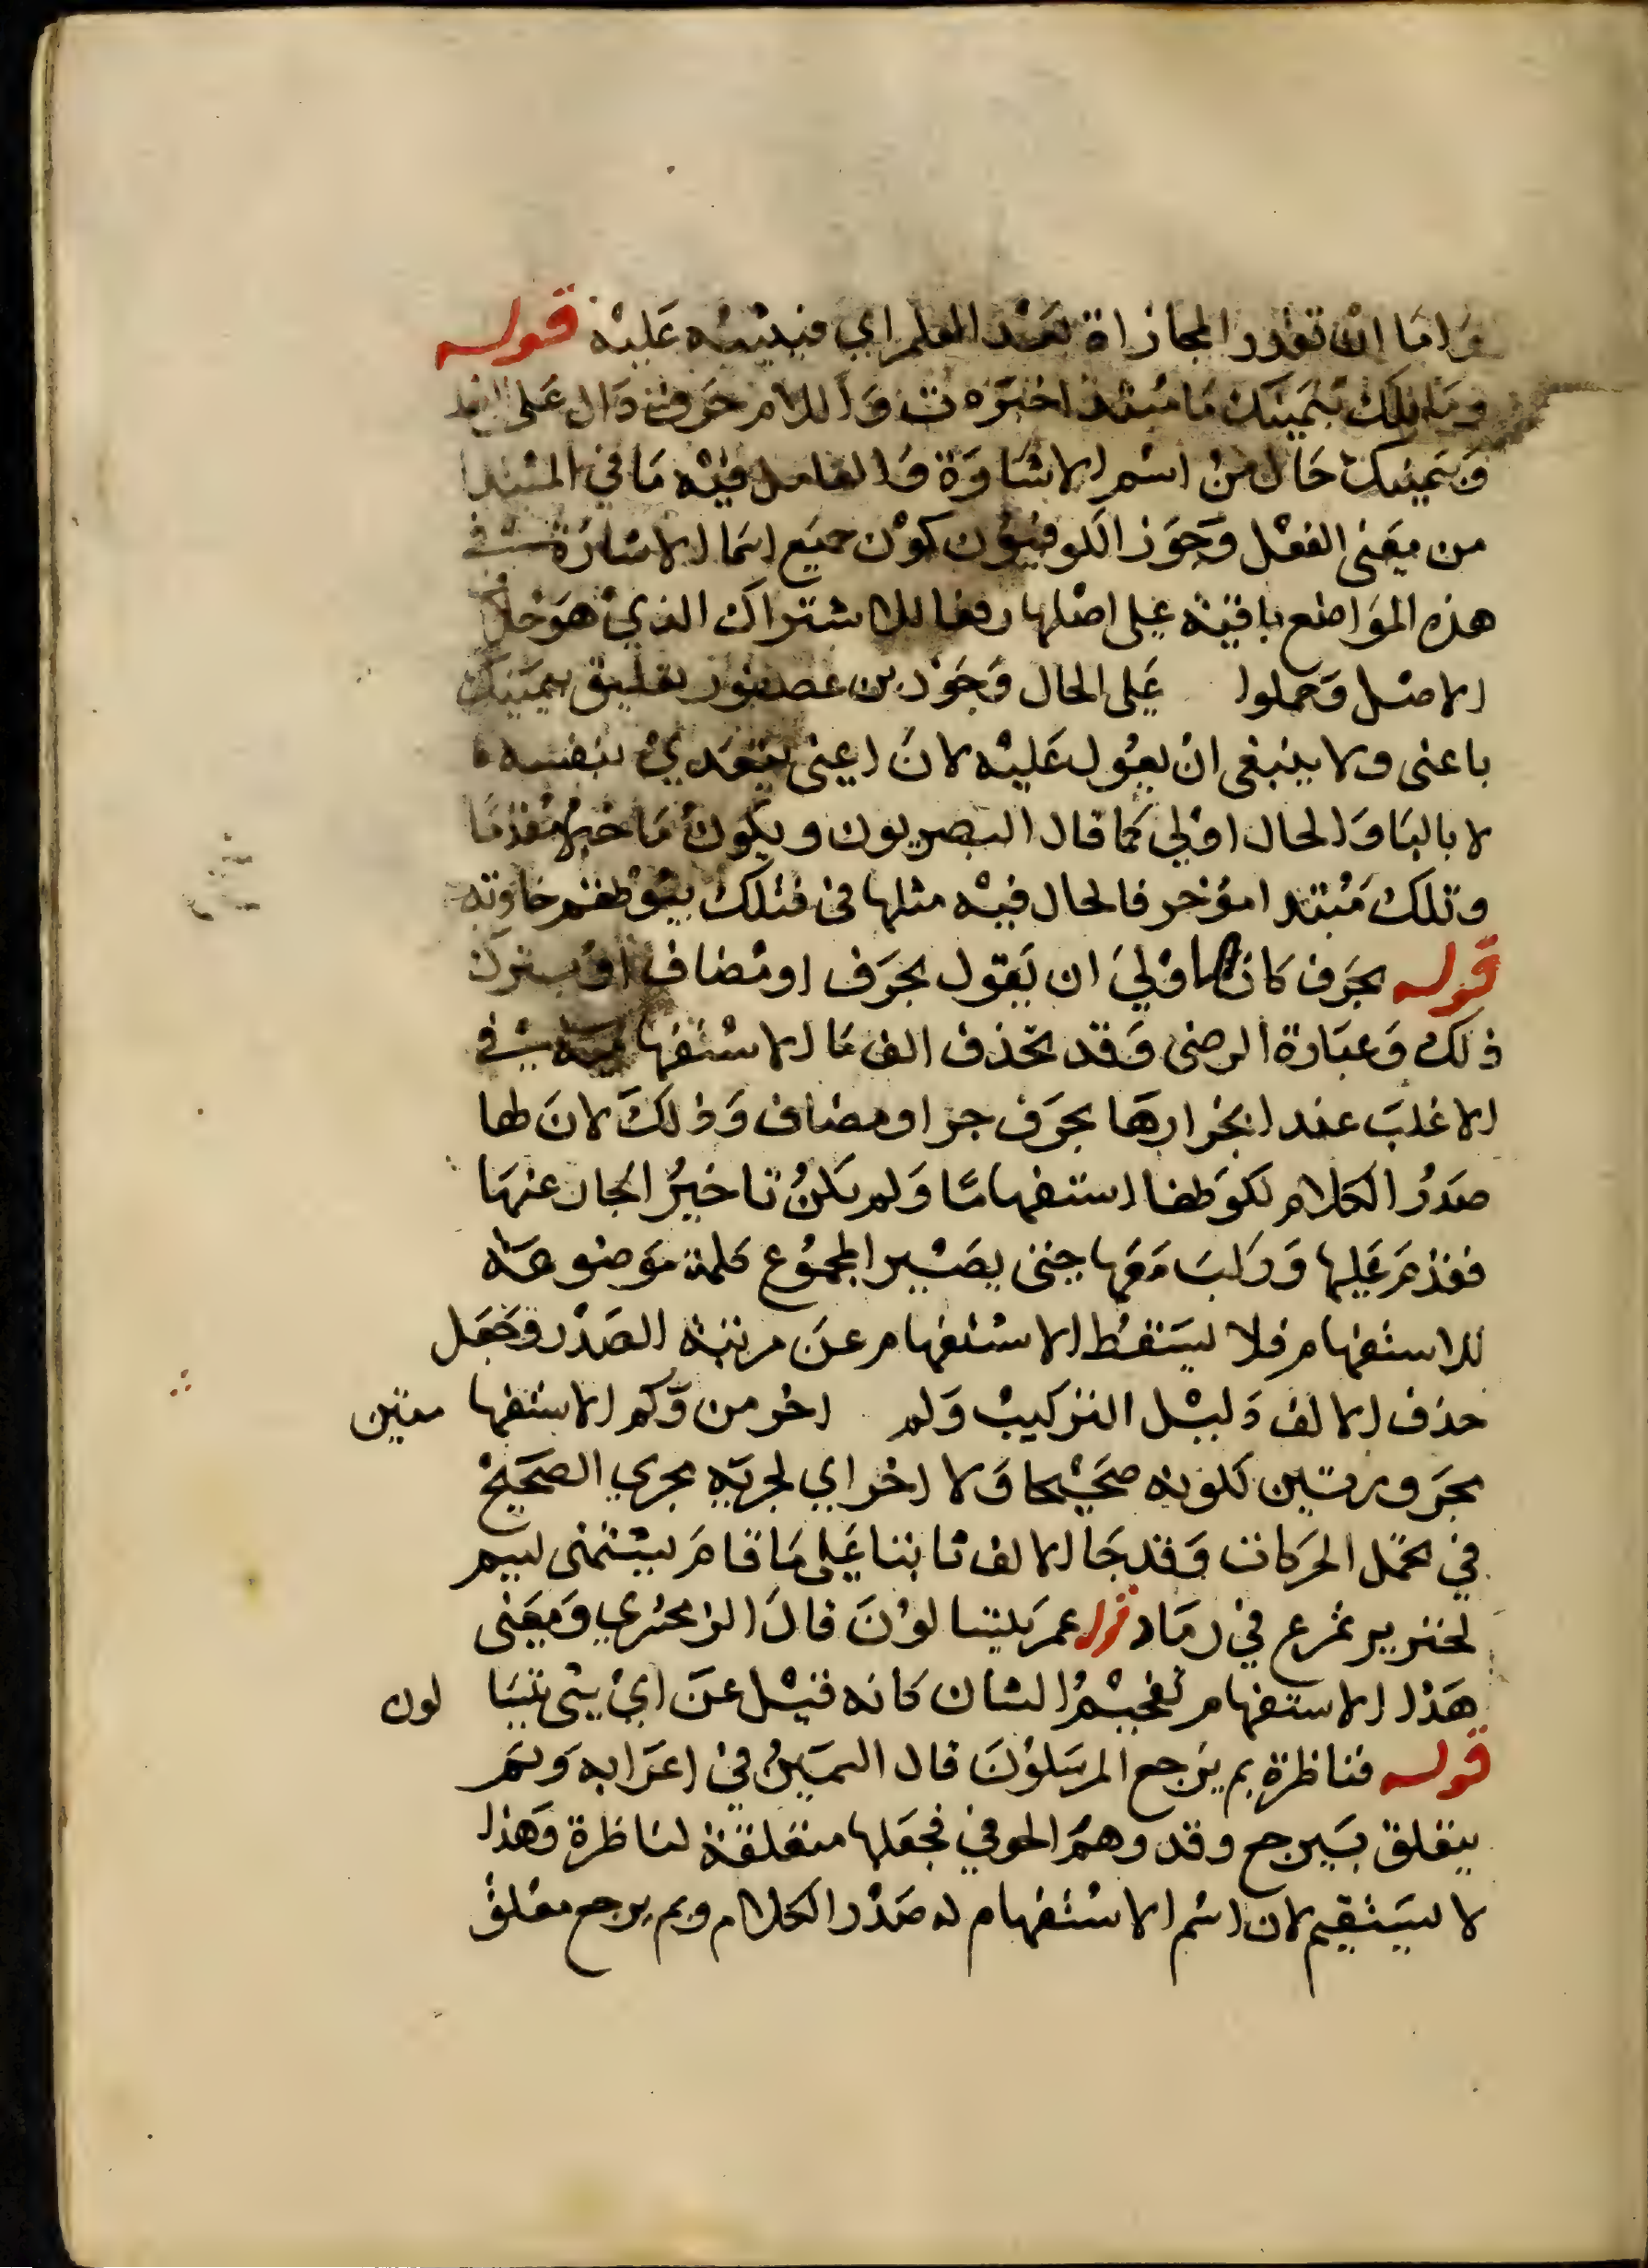 واما ان تقدر المجازاة بعند العلم اي فيديته عليه قوله
وما تلك بيمينك ما مبتدا خبره ت و اللام حرف دال على البعد
وبيمينك حال من اسم الاشارة والعامل فيه ما في المبتدا
من معنى الفعل وجوز الكوفيون كون جميع اسما الاشارة في
هذه المواضع باقية على اصلها رفعا للاشتراك الذي هو خلاف
الاصل وحملوا على الحال وجوز بن عصفور تعليق بيمينك
باعنى ولا ينبغى ان يعول عليه لان اعنى يتعدي بنفسه
لا بالبا والحال اولى كما قال البصريون ويكون ما خبرا مقدما
وتلك مبتدا مؤخر فالحال فيه مثلها فى فتلك بيوتهم خاوية
قوله بحرف كان اولى ان يقول بحرف او مضاف او يترك
ذلك وعبارة الرضى وقد تحذف الف ما الاستفهامية في
الاغلب عند انجرارها بحرف جر او مضاف وذلك لان لها
صدر الكلام لكونها استفهاما ولم يكن تاخير الجار عنها
فقدم عليها وركب معها حتى يصير المجموع كلمة موضوعة
للاستفهام فلا يسقط الاستفهام عن مرتبة الصدر وجعل
حذف الالف دليل التركيب ولم اخر من وكم الاستفها ميتين
مجرورتين لكونه صحيحا ولا اخر اي لجريه مجري الصحيح
في تحمل الحركات وقد جا الالف ثابتا على ما قام يشتمنى لييم
لخنزير تمرغ في رماد قوله عم يتسالون قال الزمخشري ومعنى
هذا الاستفهام تفخيم الشان كانه قيل عن اي شى يتسا لون
قوله فناظرة بم يرجع المرسلون قال السمين في اعرابه وبم
يتعلق بيرجع وقد وهم الحوفي فجعلها متعلقة لناظرة وهذا
لا يستقيم لان اسم الاستفهام له صدر الكلام وبم يرجع معلق